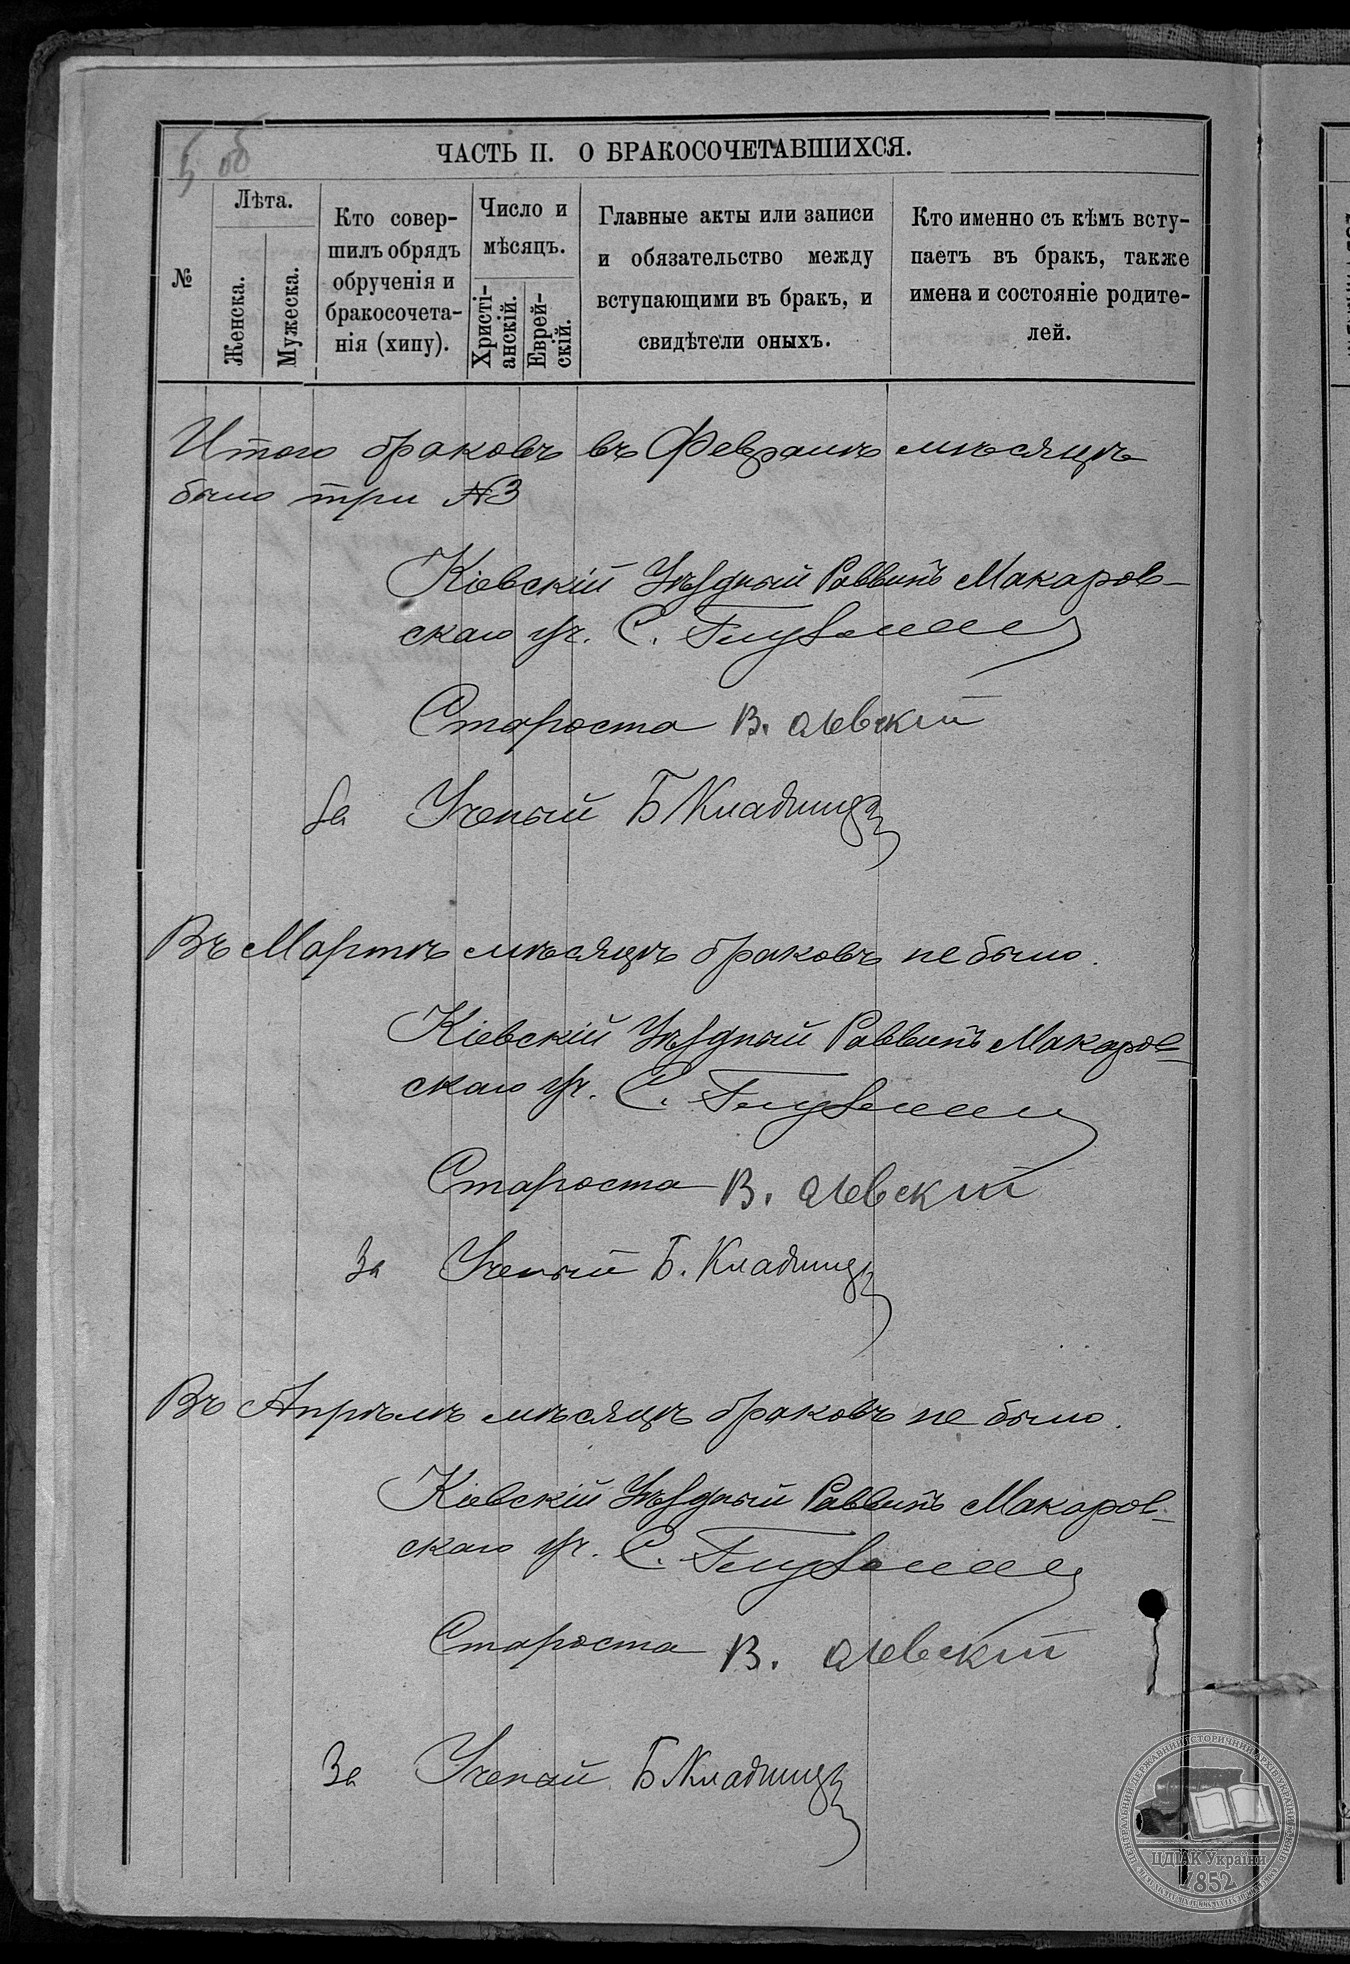 5 об
ЧАСТЬ II. О БРАКОСОЧЕТАВШИХСЯ.
№
Лѣта.
Женска.
Мужеска.
Кто совер-
шилъ обрядъ
обрученія и
бракосочета-
нія (хипу).
Число и
мѣсяцъ.
Христі-
анскій.
Еврей-
скій.
Главные акты или записи
и обязательство между
вступающими въ бракъ, и
свидѣтели оныхъ.
Кто именно съ кѣмъ всту-
паетъ въ бракъ, также
имена и состояніе родите-
лей.
Итого браковъ въ Февралѣ мѣсяцѣ
было три №3
Кіевскій Уѣздный Раввинъ Макаров-
скаго уч. С.
Староста В. Левскій
За Ученый Б
Въ Мартѣ мѣсяцѣ браковъ не было.
Кіевскій Уѣздный Раввинъ Макаров-
скаго уч. С.
Староста В. Левскій
За Ученый Б.
Въ Апрѣлѣ мѣсяцѣ браковъ не было.
Кіевскій Уѣздный Раввинъ Макаров-
скаго уч. С.
Староста В. Левскій
За Ученый Б
ЦДІАК України
1852